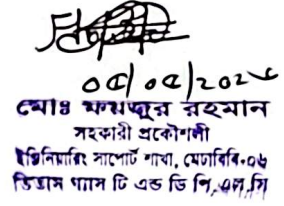 ০৫/০৫/২০২৫
মোঃ ফয়জুর রহমান
সহকারী প্রকৌশলী
ইঞ্জিনিয়ারিং সাপোর্ট শাখা, মেঢাবিবি-০৬
তিতাস গ্যাস টি এন্ড ডি পি,এল,সি